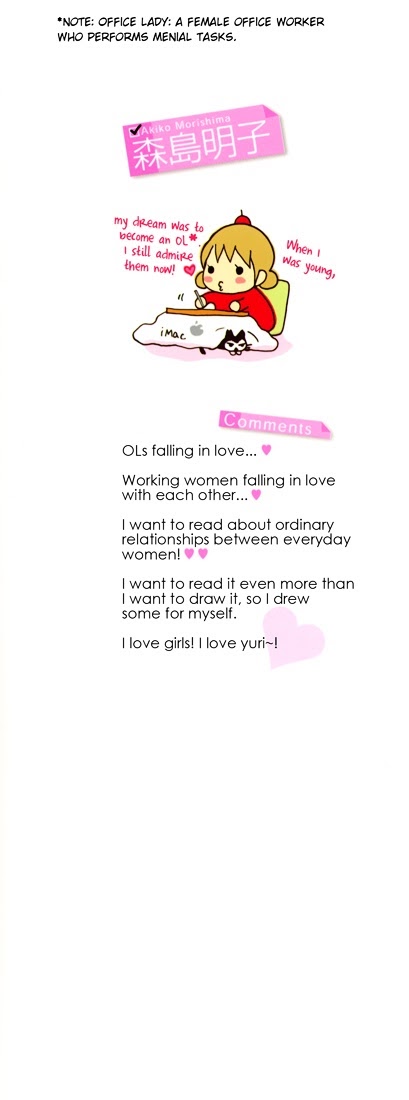 *NOTE: OFFICE LADY: A FEMALE OFFICE WORKER
WHO PERFORMS MENIAL TASKS.
Akiko Morishima
森島明子
When I
was young,
my dream was to
become an OL*.
I still admire
them now! ♥
iMac
Comments
OLs falling in love... ♥
Working women falling in love
with each other... ♥
I want to read about ordinary
relationships between everyday
women! ♥♥
I want to read it even more than
I want to draw it, so I drew
some for myself.
I love girls! I love yuri~!